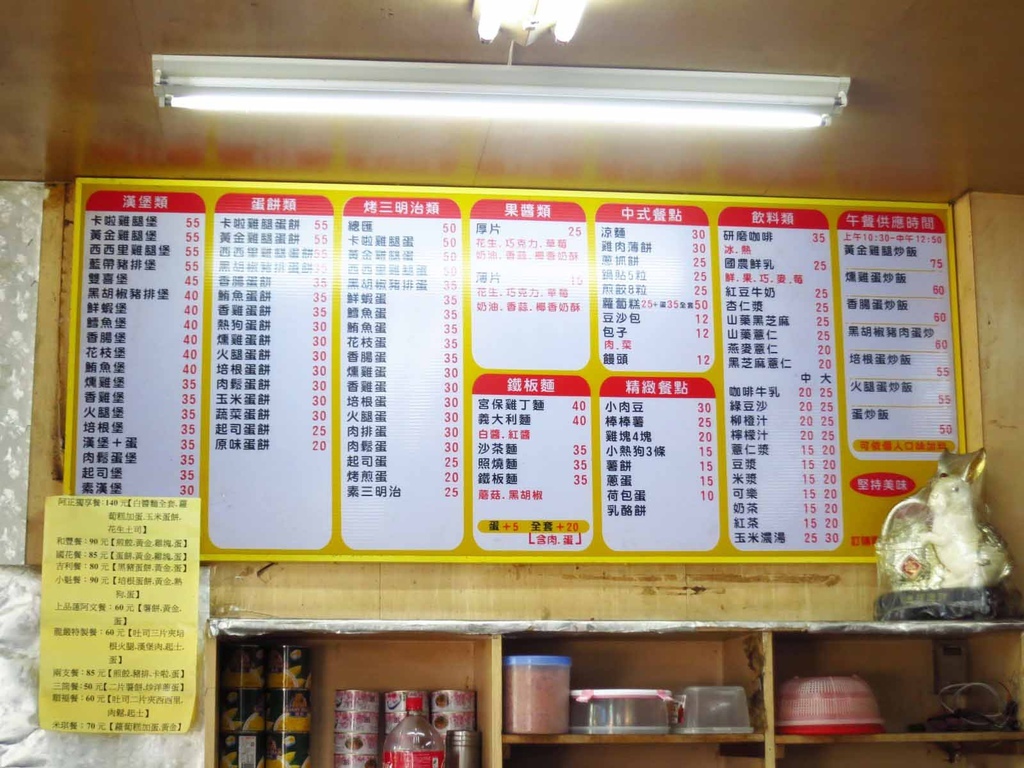 漢堡類
卡啦雞腿堡 55
黃金雞腿堡 55
西西里雞腿堡 55
藍帶豬排堡 55
雙喜堡 45
黑胡椒豬排堡 40
鮮蝦堡 40
鱈魚堡 40
花枝堡 40
鮪魚堡 40
燻雞堡 35
香雞堡 35
火腿堡 35
培根堡 35
漢堡+蛋 35
肉鬆蛋堡 35
起司堡 35
素漢堡 30
蛋餅類
卡啦雞腿蛋餅 55
黃金雞腿蛋餅 55
西西里雞腿蛋餅 55
黑胡椒豬排蛋餅 35
香腸蛋餅 35
鮪魚蛋餅 35
香雞蛋餅 35
熱狗蛋餅 30
燻雞蛋餅 30
火腿蛋餅 30
培根蛋餅 30
肉鬆蛋餅 30
玉米蛋餅 30
蔬菜蛋餅 30
起司蛋餅 25
原味蛋餅 20
烤三明治類
總匯 50
卡啦雞腿蛋 50
黃金雞腿蛋 50
西西里雞腿蛋 50
黑胡椒豬排蛋 35
鮮蝦蛋 35
鱈魚蛋 35
鮪魚蛋 35
花枝蛋 35
香腸蛋 35
燻雞蛋 30
香雞蛋 30
培根蛋 30
火腿蛋 30
肉排蛋 30
肉鬆蛋 30
起司蛋 25
烤煎蛋 20
素三明治 25
果醬類
厚片 25
花生.巧克力.草莓
奶油.香蒜.椰香奶酥
薄片 15
花生.巧克力.草莓
奶油.香蒜.椰香奶酥
鐵板麵
宮保雞丁麵 40
義大利麵 40
白醬.紅醬
沙茶麵 35
照燒麵 35
鐵板麵 35
蘑菇.黑胡椒
蛋+5 全套+20
[含肉.蛋]
中式餐點
涼麵 30
雞肉薄餅 30
蔥抓餅 25
鍋貼5粒 25
煎餃8粒 25
蘿蔔糕25+蛋35全套50
豆沙包 12
包子 12
肉.菜
饅頭 12
精緻餐點
小肉豆 30
棒棒薯 25
雞塊4塊 20
小熱狗3條 15
薯餅 15
蔥蛋 15
荷包蛋 10
乳酪餅
飲料類
研磨咖啡 35
冰.熱
國農鮮乳 25
鮮.果.巧.麥.莓
紅豆牛奶 25
杏仁漿 25
山藥黑芝麻 25
山藥薏仁 25
燕麥薏仁 20
黑芝麻薏仁 20
中 大
咖啡牛乳 20 25
綠豆沙 20 25
柳橙汁 20 25
檸檬汁 20 25
薏仁漿 15 20
豆漿 15 20
米漿 15 20
可樂 15 20
奶茶 15 20
紅茶 15 20
玉米濃湯 25 30
午餐供應時間
上午10:30-中午12:50
黃金雞腿炒飯
75
燻雞蛋炒飯
60
香腸蛋炒飯
60
黑胡椒豬肉蛋炒
60
培根蛋炒飯
55
火腿蛋炒飯
55
蛋炒飯
50
可依個人口味加點
堅持美味
阿正獨享餐:140元【白醬麵全套.蘿
蔔糕加蛋.玉米蛋餅.
花生土司】
和豐餐:90元【煎餃.黃金.雞塊.蛋】
國花餐:85元【蛋餅.黃金.雞塊.蛋】
吉利餐:80元【黑豬蛋餅.黃金.蛋】
小魁餐:90元【培根蛋餅.黃金.熱
狗.蛋】
上品蓮阿文餐:60元【薯餅.黃金.
蛋】
龍鍛特製餐:60元【吐司三片夾培
根火腿.漢堡肉.起土.
蛋】
兩支餐:85元【煎餃.豬排.卡啦.蛋】
三院餐:50元【二片薯餅.炒洋蔥蛋】
順福餐:60元【吐司二片夾西西里.
肉鬆.起士】
米琪餐:70元【蘿蔔糕加蛋.黃金】